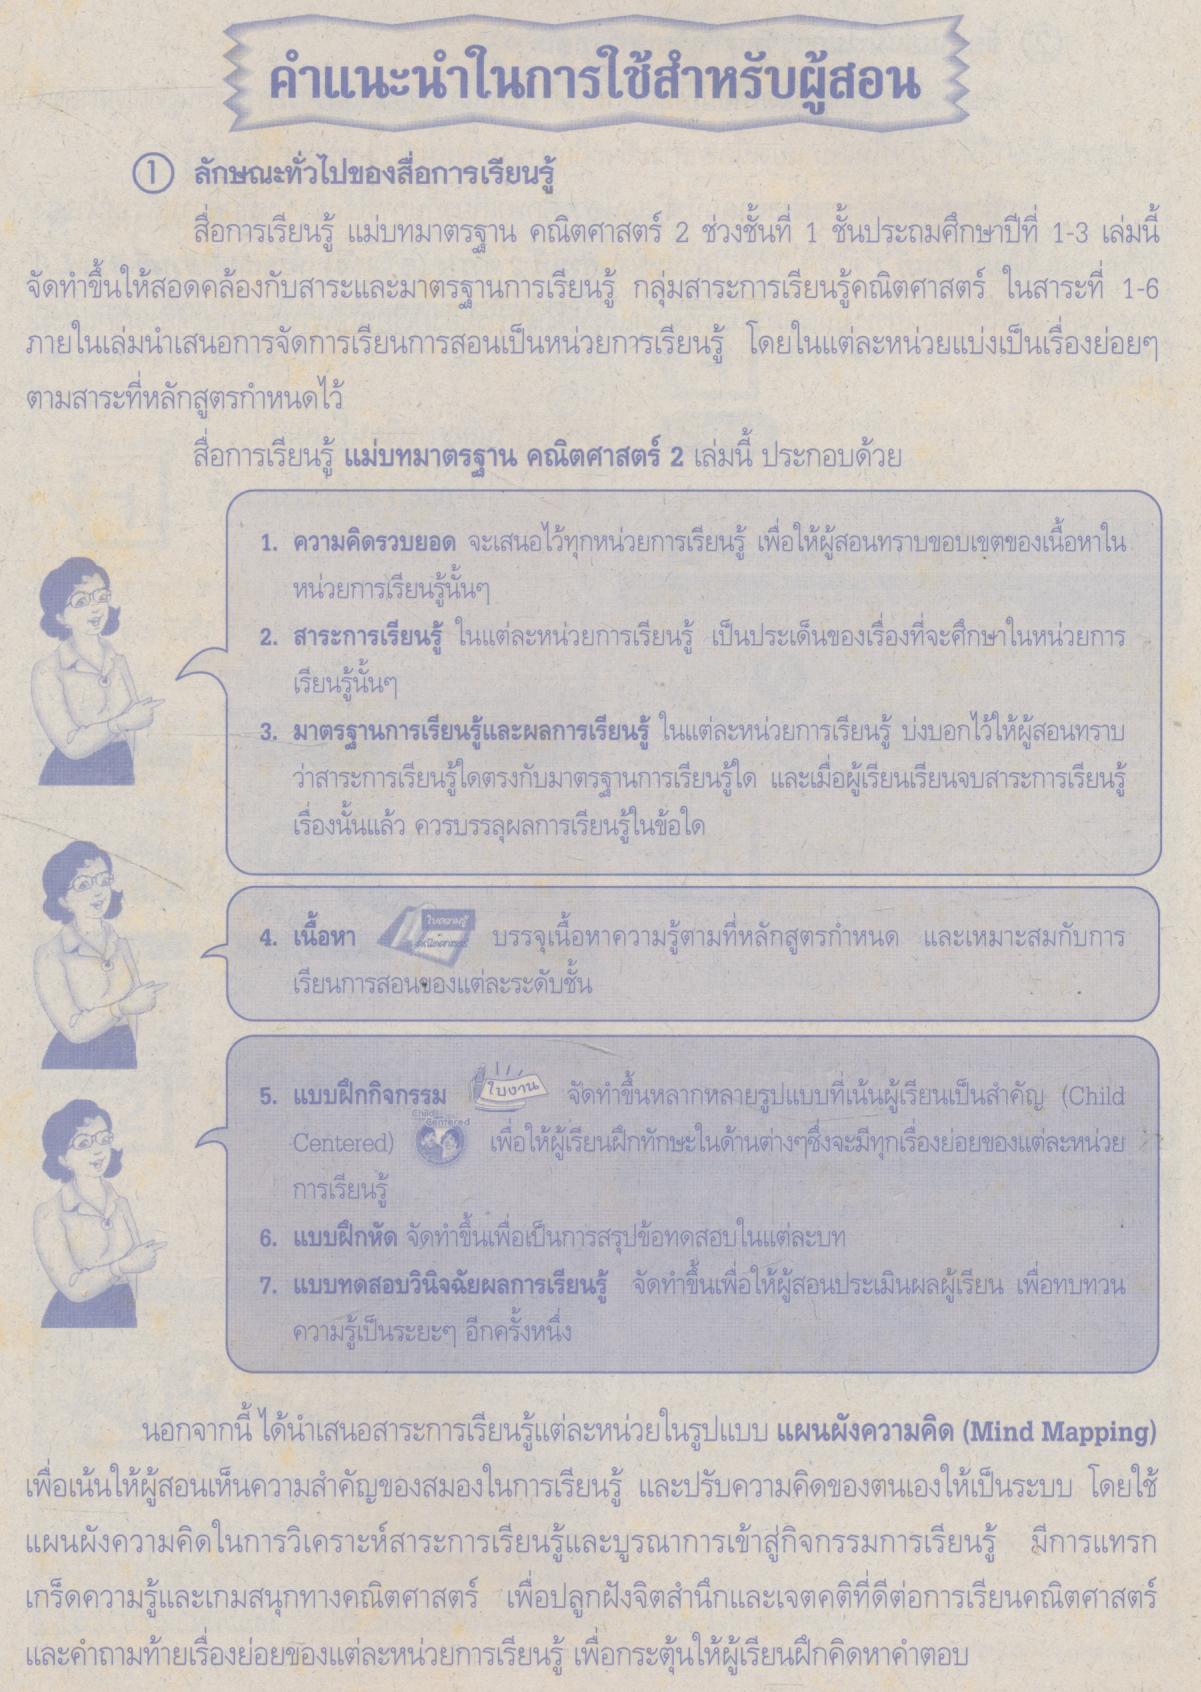 คำแนะนำในการใช้สำหรับผู้สอน
1 ลักษณะทั่วไปของสื่อการเรียนรู้
สื่อการเรียนรู้ แม่บทมาตรฐาน คณิตศาสตร์ 2 ช่วงชั้นที่ 1 ชั้นประถมศึกษาปีที่ 1-3 เล่มนี้
จัดทำขึ้นให้สอดคล้องกับสาระและมาตรฐานการเรียนรู้ กลุ่มสาระการเรียนรู้คณิตศาสตร์ ในสาระที่ 1-6
ภายในเล่มนำเสนอการจัดการเรียนการสอนเป็นหน่วยการเรียนรู้ โดยในแต่ละหน่วยแบ่งเป็นเรื่องย่อยๆ
ตามสาระที่หลักสูตรกำหนดไว้
สื่อการเรียนรู้ แม่บทมาตรฐาน คณิตศาสตร์ 2 เล่มนี้ ประกอบด้วย
1. ความคิดรวบยอด จะเสนอไว้ทุกหน่วยการเรียนรู้ เพื่อให้ผู้สอนทราบขอบเขตของเนื้อหาใน
หน่วยการเรียนรู้นั้นๆ
2. สาระการเรียนรู้ ในแต่ละหน่วยการเรียนรู้ เป็นประเด็นของเรื่องที่จะศึกษาในหน่วยการ
เรียนรู้นั้นๆ
3. มาตรฐานการเรียนรู้และผลการเรียนรู้ ในแต่ละหน่วยการเรียนรู้ บ่งบอกไว้ให้ผู้สอนทราบ
ว่าสาระการเรียนรู้ใดตรงกับมาตรฐานการเรียนรู้ใด และเมื่อผู้เรียนเรียนจบสาระการเรียนรู้
เรื่องนั้นแล้ว ควรบรรลุผลการเรียนรู้ในข้อใด
4. เนื้อหา ใบความรู้ คณิตศาสตร์ บรรจุเนื้อหาความรู้ตามที่หลักสูตรกำหนด และเหมาะสมกับการ
เรียนการสอนของแต่ละระดับชั้น
5. แบบฝึกกิจกรรม ใบงาน จัดทำขึ้นหลากหลายรูปแบบที่เน้นผู้เรียนเป็นสำคัญ (Child
Centered) Child Centered เพื่อให้ผู้เรียนฝึกทักษะในด้านต่างๆซึ่งจะมีทุกเรื่องย่อยของแต่ละหน่วย
การเรียนรู้
6. แบบฝึกหัด จัดทำขึ้นเพื่อเป็นการสรุปข้อทดสอบในแต่ละบท
7. แบบทดสอบวินิจฉัยผลการเรียนรู้ จัดทำขึ้นเพื่อให้ผู้สอนประเมินผลผู้เรียน เพื่อทบทวน
ความรู้เป็นระยะๆ อีกครั้งหนึ่ง
นอกจากนี้ ได้นำเสนอสาระการเรียนรู้แต่ละหน่วยในรูปแบบ แผนผังความคิด (Mind Mapping)
เพื่อเน้นให้ผู้สอนเห็นความสำคัญของสมองในการเรียนรู้ และปรับความคิดของตนเองให้เป็นระบบ โดยใช้
แผนผังความคิดในการวิเคราะห์สาระการเรียนรู้และบูรณาการเข้าสู่กิจกรรมการเรียนรู้ มีการแทรก
เกร็ดความรู้และเกมสนุกทางคณิตศาสตร์ เพื่อปลูกฝังจิตสำนึกและเจตคติที่ดีต่อการเรียนคณิตศาสตร์
และคำถามท้ายเรื่องย่อยของแต่ละหน่วยการเรียนรู้ เพื่อกระตุ้นให้ผู้เรียนฝึกคิดหาคำตอบ